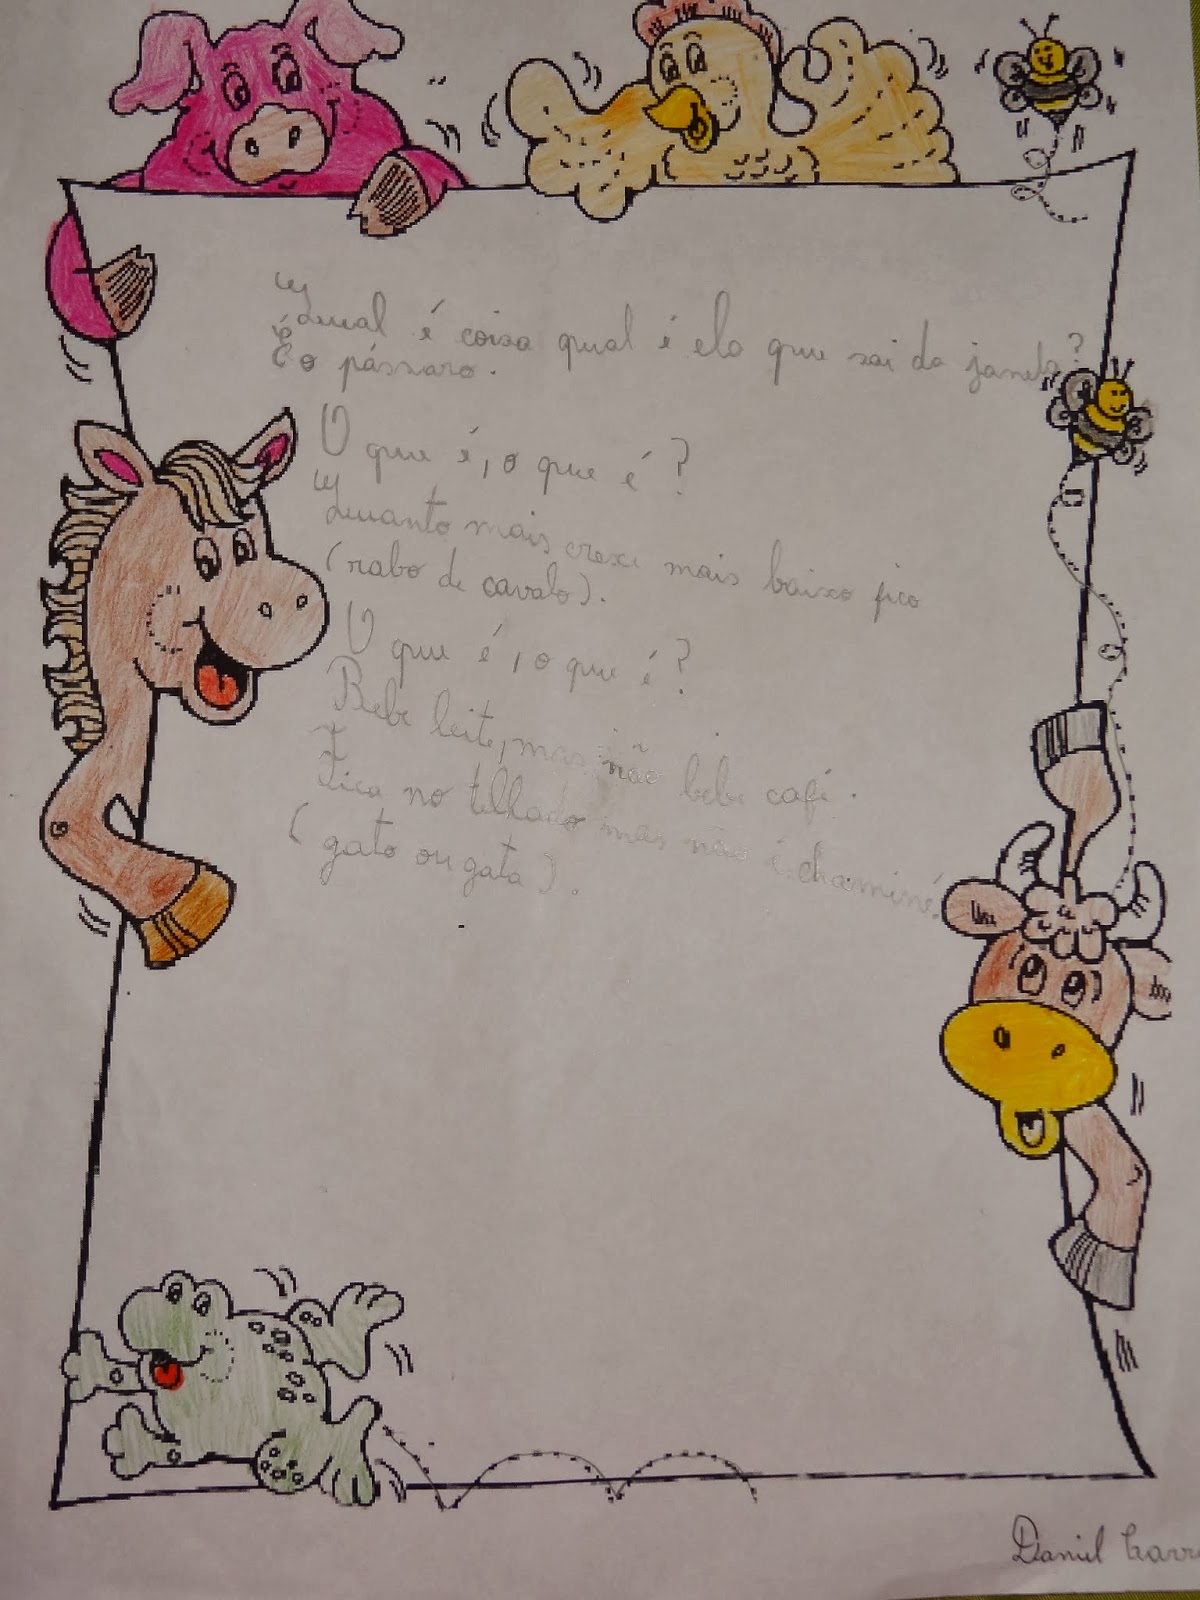 Qual é coisa qual é ela que sai da janela?
É o pássaro.
O que é, o que é?
Quanto mais cresce mais baixo fico
(rabo de cavalo).
O que é, o que é?
Bebe leite, mas não bebe café.
Fica no telhado mas não é chaminé.
(gato ou gata).
Daniel